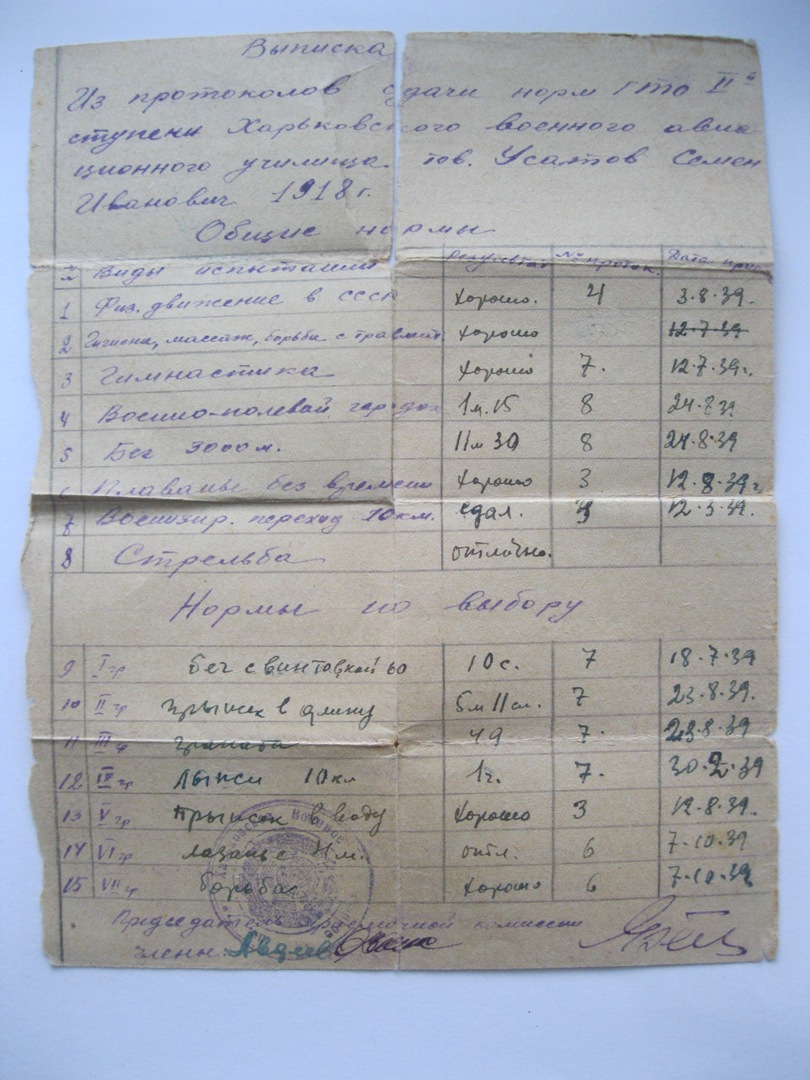 Выписка
Из протоколов сдачи норм ГТО II й
ступени Харьковского военного авиа
ционного училища. тов. Усатов Семен
Иванович 1918 г.
Общие нормы
Виды испытании Результат № проток. Дата
1 Физ. движение в СССР хорошо. 4 3.8.39.
2 Гигиена, массаж, борьба с травмат. хорошо 12.7.39
3 Гимнастика хорошо 7. 12.7.39г.
4 Военно-полевой городок 1м.15 8 24.7.39
5 Бег 3000 м. 11м 30 8 24.8.39
6 Плаванье без времени хорошо 3 12.8.39г
7 Военизир. переход 10 км. сдал. 12.3.39.
8 Стрельба отлично.
Нормы по выбору
9 I гр бег с винтовкой 60 10 с. 7 18.7.39
10 II гр прыжек в длину 5м 11см. 7 23.8.39.
11 III гр граната 49 7. 23.8.39
12 IV гр лыжи 10 км 1ч. 7. 30.2.39
13 V гр прыжок в воду хорошо 3 12.8.39.
14 VI гр лазанье 4м. отл. 6 7.10.39
15 VII гр борьба хорошо 6 7.10.39
Председатель приемочной комиссии
члены: Авдеев